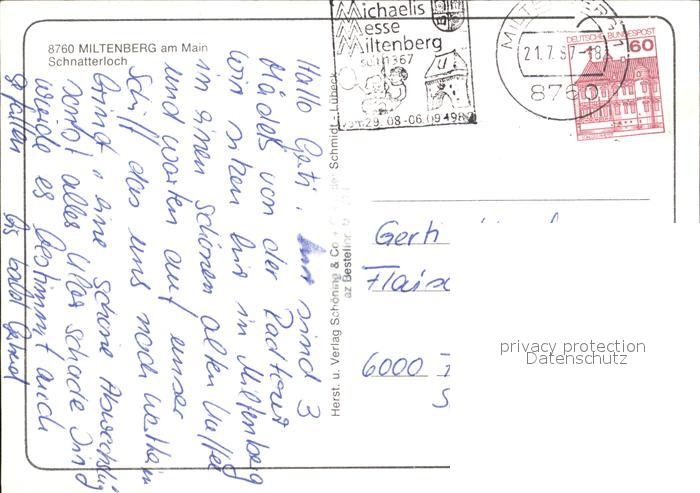 8760 MILTENBERG am Main
Schnatterloch
Michaelis
Messe
Miltenberg
seit 1367
vom 29. 08-06.09.1987
MILTENBERG 1
21.7.87-18
8760
DEUTSCHE BUNDESPOST
60
Hallo Gerti, wir sind 3
Mädels von der Radtour
wir sitzen hier in Miltenberg
in einen schönen alten Keller
und warten auf unser
Schiff das uns nach Wertheim
bringt, eine schöne Abwechslung
sonst alles klar schade Ingrid
würde es bestimmt auch
gefallen Bis bald
Herst. u. Verlag Schöning & Co + Schmidt - Lübeck
az Bestellnr.
Gerti
6000
privacy protection
Datenschutz